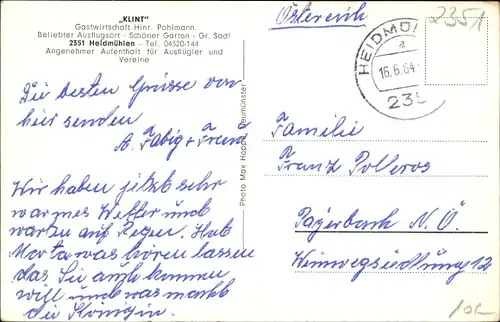 „KLINT"
Gastwirtschaft Hinr. Pohlmann
Beliebter Ausflugsort - Schöner Garten - Gr. Saal
2351 Heidmühlen - Tel. 04520-144
Angenehmer Aufenthalt für Ausflügler und
Vereine
Die besten Grüsse von
hier senden
A. Fabig + Freund
Wir haben jetzt sehr
warmes Wetter und
warten auf Regen. Hat
Marta was hören lassen
das Sie auch kommen
will und was macht
die Königin.
Photo Max Hoppe, Neumünster
Österreich
2351
HEIDMÜ
a
16.6.84
235
Familie
Franz Polleros
N.Ö.
Weinwegsiedlung 12